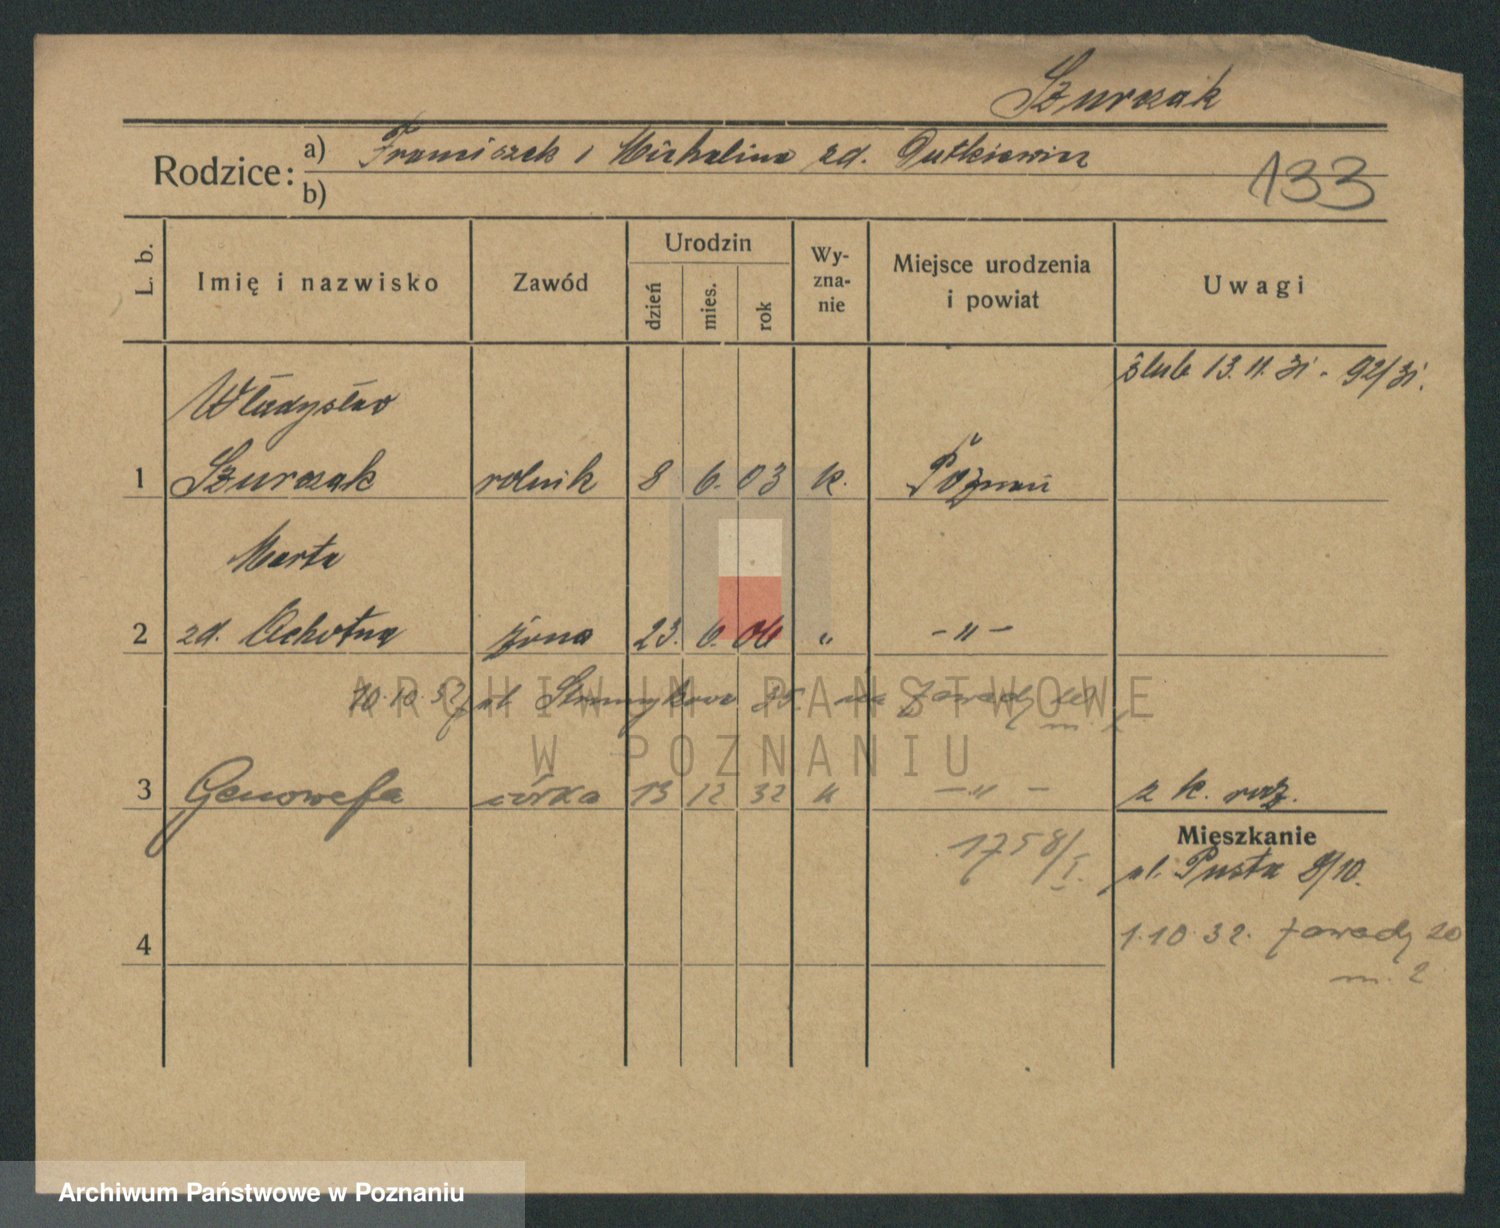 Szurczak
Rodzice: a) Franciszek i Michalina zd. Dutkiewicz
b)
133
L. b. Imię i nazwisko Zawód Urodzin dzień mies. rok Wyznanie Miejsce urodzenia i powiat Uwagi
ślub 13.11.31 - 92/31.
Władysław
1 Szurczak rolnik 8 6. 03 k. Poznań
Marta
2 zd. Ochotna żona 23. 6. 06 " - " -
10.10.32 ul. 35. na Zawady 20
m. 2
3 Genowefa córka 13 12 32 " - " - z k. rodz.
1758/I.
Mieszkanie
ul. Pusta 9/10.
1.10.32. Zawady 20
m. 2
4
ARCHIWUM PAŃSTWOWE
W POZNANIU
Archiwum Państwowe w Poznaniu